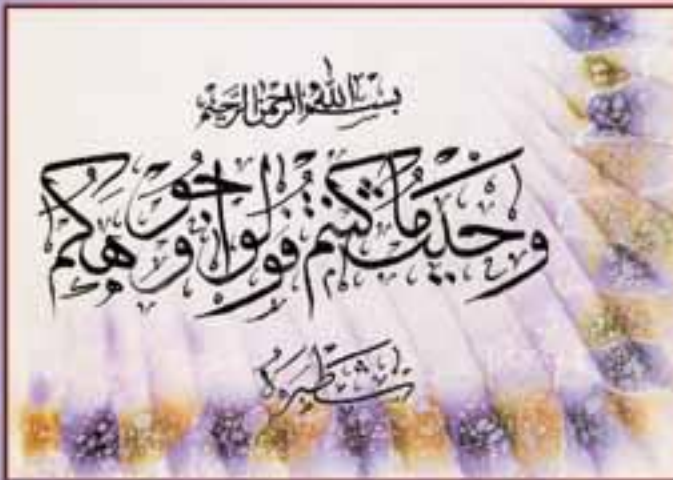 بسم الله الرحمن الرحيم
وحيث ما كنتم فولوا وجوهكم
شطره